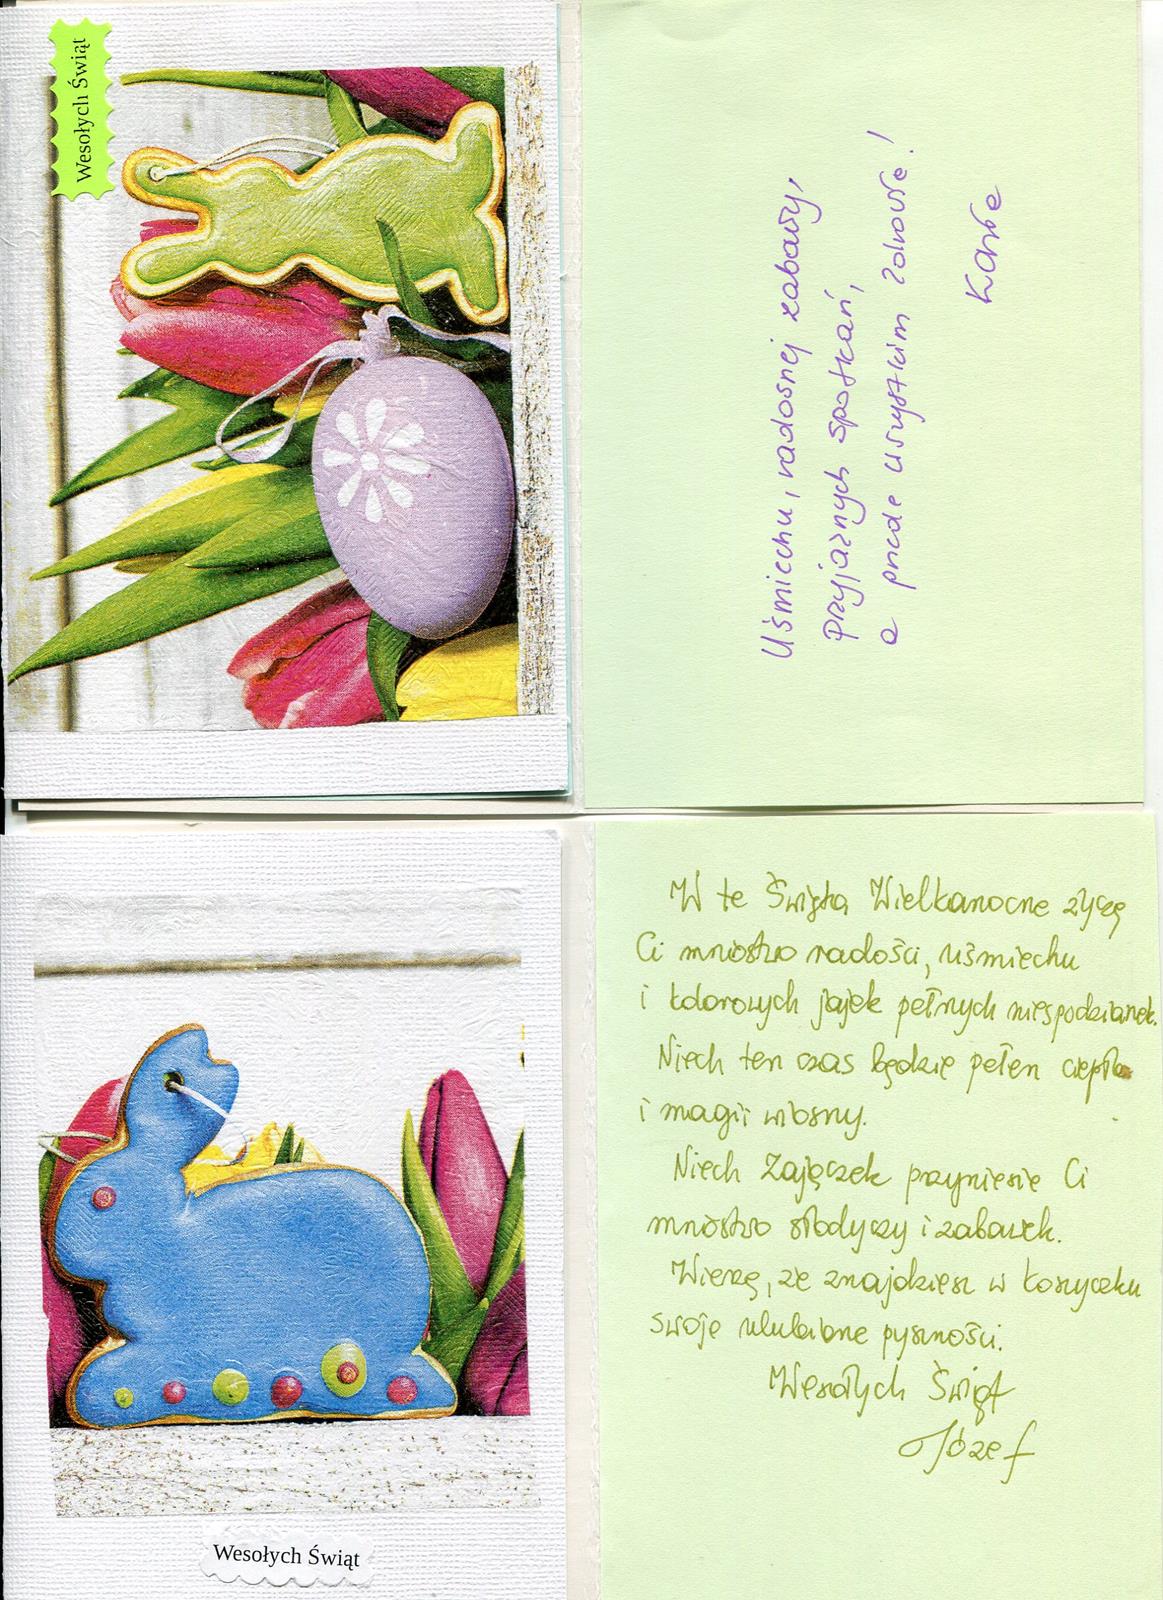 Wesołych Świąt
Uśmiechu, radosnej zabawy,
Przyjaznych spotkań,
a przede wszystkim zdrowie!
W te Święta Wielkanocne życzę
Ci mnóstwo radości, uśmiechu
i kolorowych jajek pełnych niespodzianek.
Niech ten czas będzie pełen ciepła
i magii wiosny.
Niech Zajączek przyniesie Ci
mnóstwo słodyczy i zabawek.
Wierzę, że znajdziesz w koszyczku
swoje ulubione pyszności.
Wesołych Świąt
Józef
Wesołych Świąt